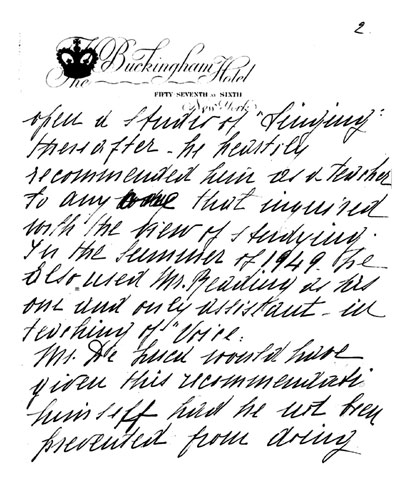 2
The Buckingham Hotel
FIFTY SEVENTH AT SIXTH
New York
open a studio of "Singing"
thereafter - he heartily
recommended him as a teacher
to any one that inquired
with the view of studying.
In the summer of 1949. he
also used Mr. Reading as his
one and only assistant - in
teaching of "Voice.
Mr. De Luca would have
given this recommendati
himself had he not been
prevented from doing